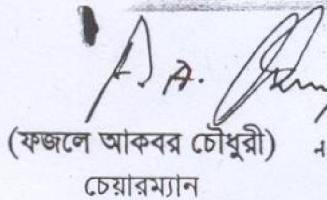 (ফজলে আকবর চৌধুরী)
চেয়ারম্যান